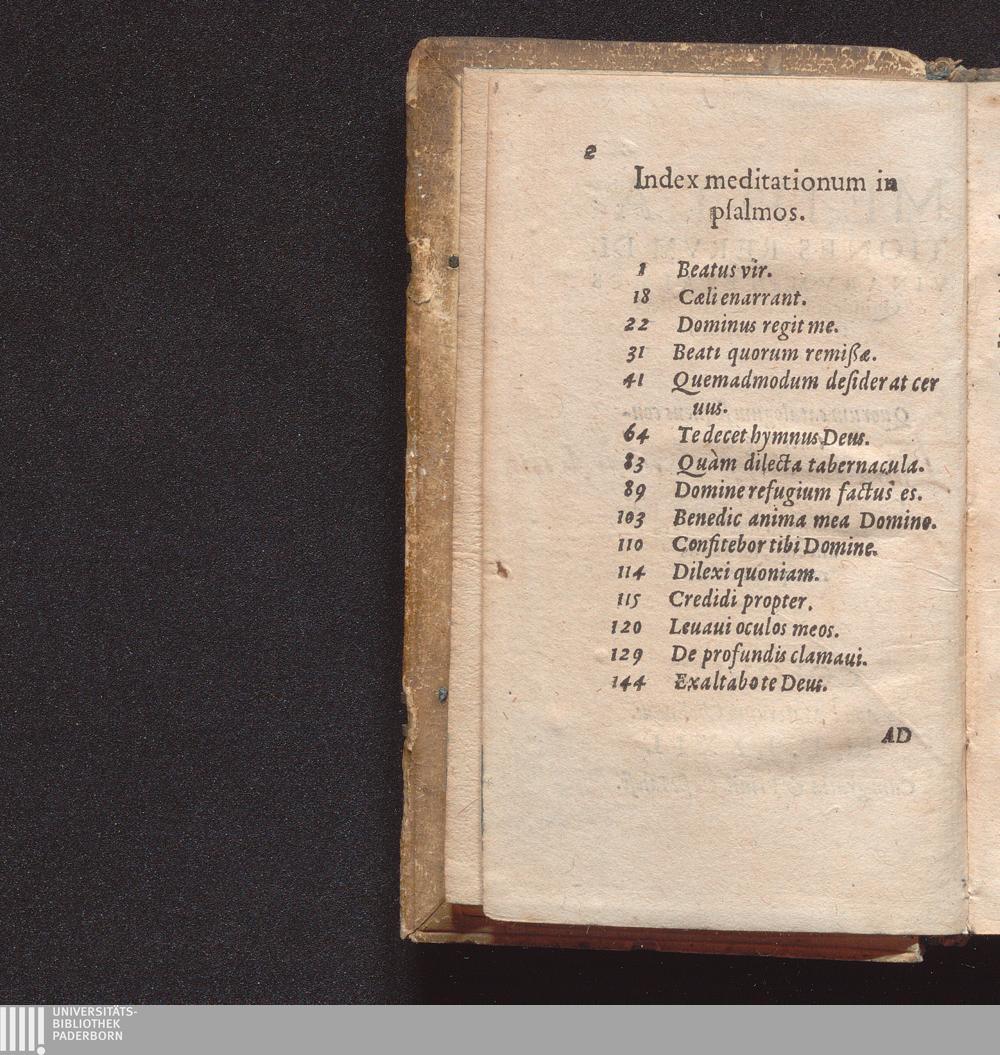 2
Index meditationum in
pſalmos.
1 Beatus vir.
18 Cæli enarrant.
22 Dominus regit me.
31 Beati quorum remißæ.
41 Quemadmodum deſiderat cer
uus.
64 Te decet hymnus Deus.
83 Quàm dilecta tabernacula.
89 Domine refugium factus es.
103 Benedic anima mea Domino.
110 Confitebor tibi Domine.
114 Dilexi quoniam.
115 Credidi propter.
120 Leuaui oculos meos.
129 De profundis clamaui.
144 Exaltabo te Deus.
AD
UNIVERSITÄTS-
BIBLIOTHEK
PADERBORN